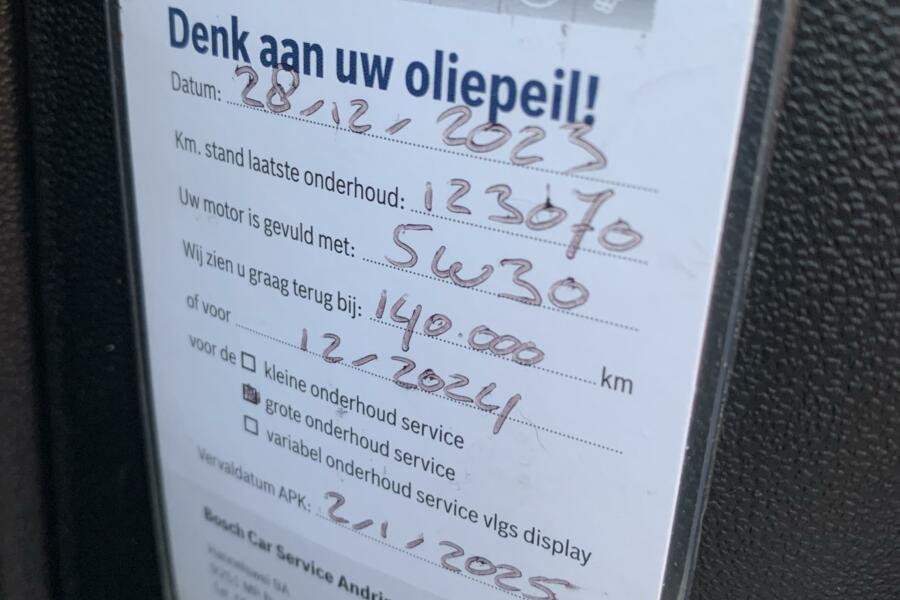 Denk aan uw oliepeil!
Datum: 28/12/2023
Km. stand laatste onderhoud: 123070
Uw motor is gevuld met: 5W30
Wij zien u graag terug bij: 140.000 km
of voor 12/2024
voor de ☐ kleine onderhoud service
☒ grote onderhoud service
☐ variabel onderhoud service vlgs display
Vervaldatum APK: 2/1/2025
Bosch Car Service